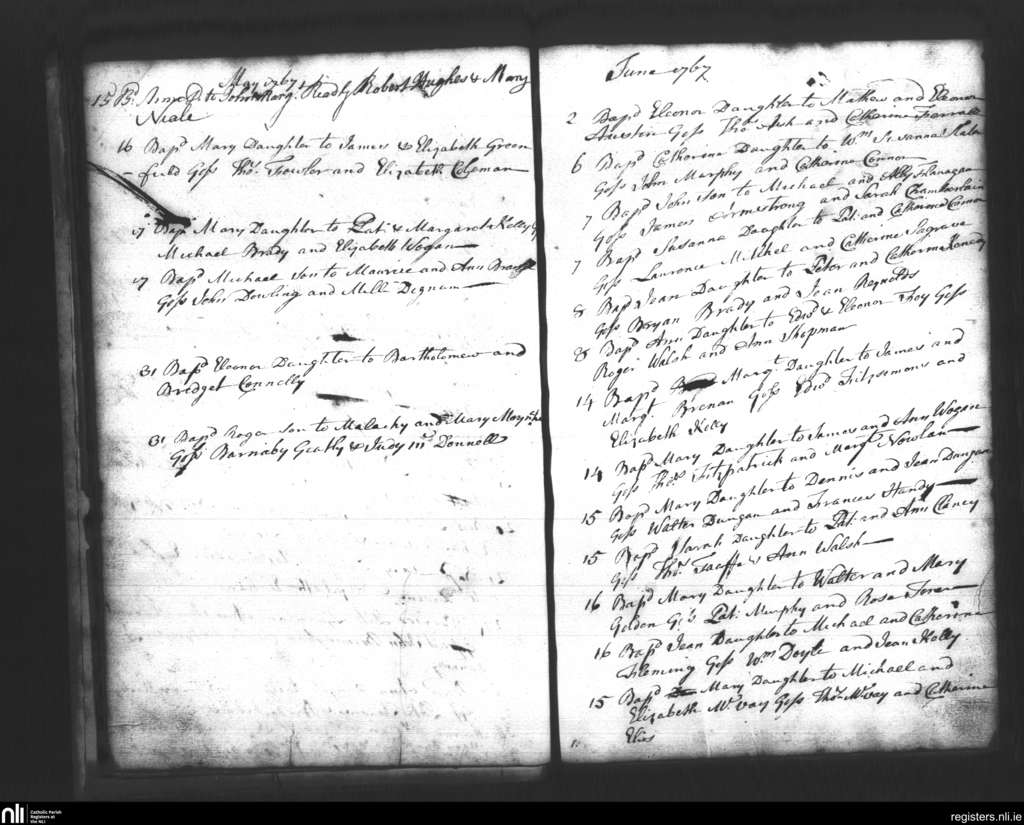 May 1767
15 Bp. to John & Marg. Ready Robert Hughes & Mary
Neale
16 Bapd Mary Daughter to James & Elizabeth Green
= field Goss Thos. Fowler and Elizabeth Coleman
17 Bap Mary Daughter to Pat: & Margaret Kelly
Michael Brady and Elizabeth Wogan
17 Bapd Michael Son to Maurice and Ann
Goss John Dowling and Mill Dignam
31 Bapd Eleonor Daughter to Bartholomew and
Bridget Connolly
31 Bapd Roger Son to Malachy and Mary
Goss Barnaby Geathy & Judy McDonnell
June 1767
2 Bapd Eleonor Daughter to Mathew and Eleonor
Austin Goss Thos. Ash and Catherine Farrall
6 Bapd Catherine Daughter to Wm. Susanna
Goss John Murphy and Catharine Connor
7 Bapd John Son to Michael and Abby Flanagan
Goss James Armstrong and Sarah Chamberlain
7 Bapd Susanna Daughter to Pat: and Catherine Connor
Goss Laurence Mitchel and Catherine Sagrave
8 Bapd Jean Daughter to Peter and Catherine
Goss Bryan Brady and Jean Reynolds
8 Bapd Ann Daughter to Edwd & Eleonor Goss
Roger Walsh and Ann Shepman
14 Bapd Margt. Daughter to James and
Margt. Brenan Goss Edwd Fitzsemons and
Elizabeth Kelly
14 Bapd Mary Daughter to James and Ann Wogan
Goss Thos. Fitzpatrick and Margt. Nowlan
15 Bapd Mary Daughter to Dennis and Jean Dungan
Goss Walter Dungan and Frances Handy
15 Bapd Sarah Daughter to Pat: and Ann Clancy
Goss Thos. Taaffe & Ann Walsh
16 Bapd Mary Daughter to Walter and Mary
Golden Gs. Pat: Murphy and Rose
16 Bapd Jean Daughter to Michael and Catherine
Fleming Goss Wm Doyle and Jean Kelly
15 Bapd Mary Daughter to Michael and
Elizabeth McVay Goss Thos. McVay and Catharine
nli
Catholic Parish
Registers at
the NLI
registers.nli.ie